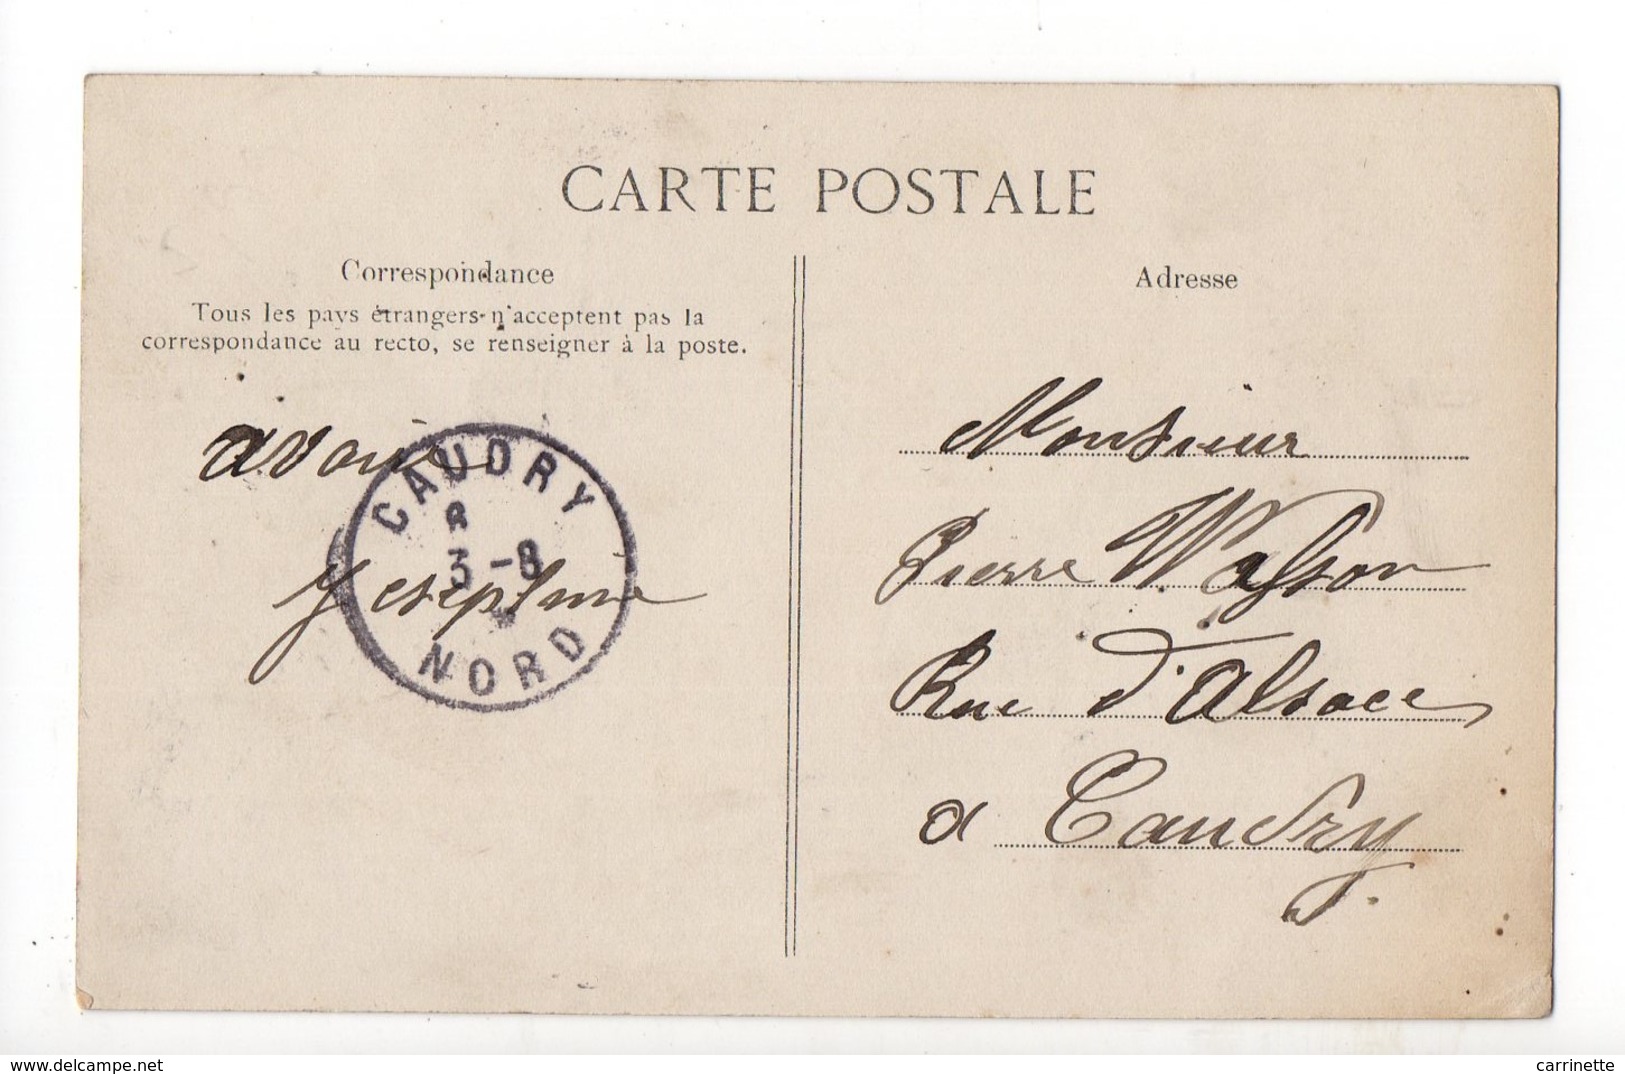 CARTE POSTALE
Correspondance
Tous les pays étrangers n'acceptent pas la
correspondance au recto, se renseigner à la poste.
Adresse
CAUDRY
3 - 8
NORD
Monsieur
Pierre
Rue d'Alsace
a Caudry
www.delcampe.net
carrinette